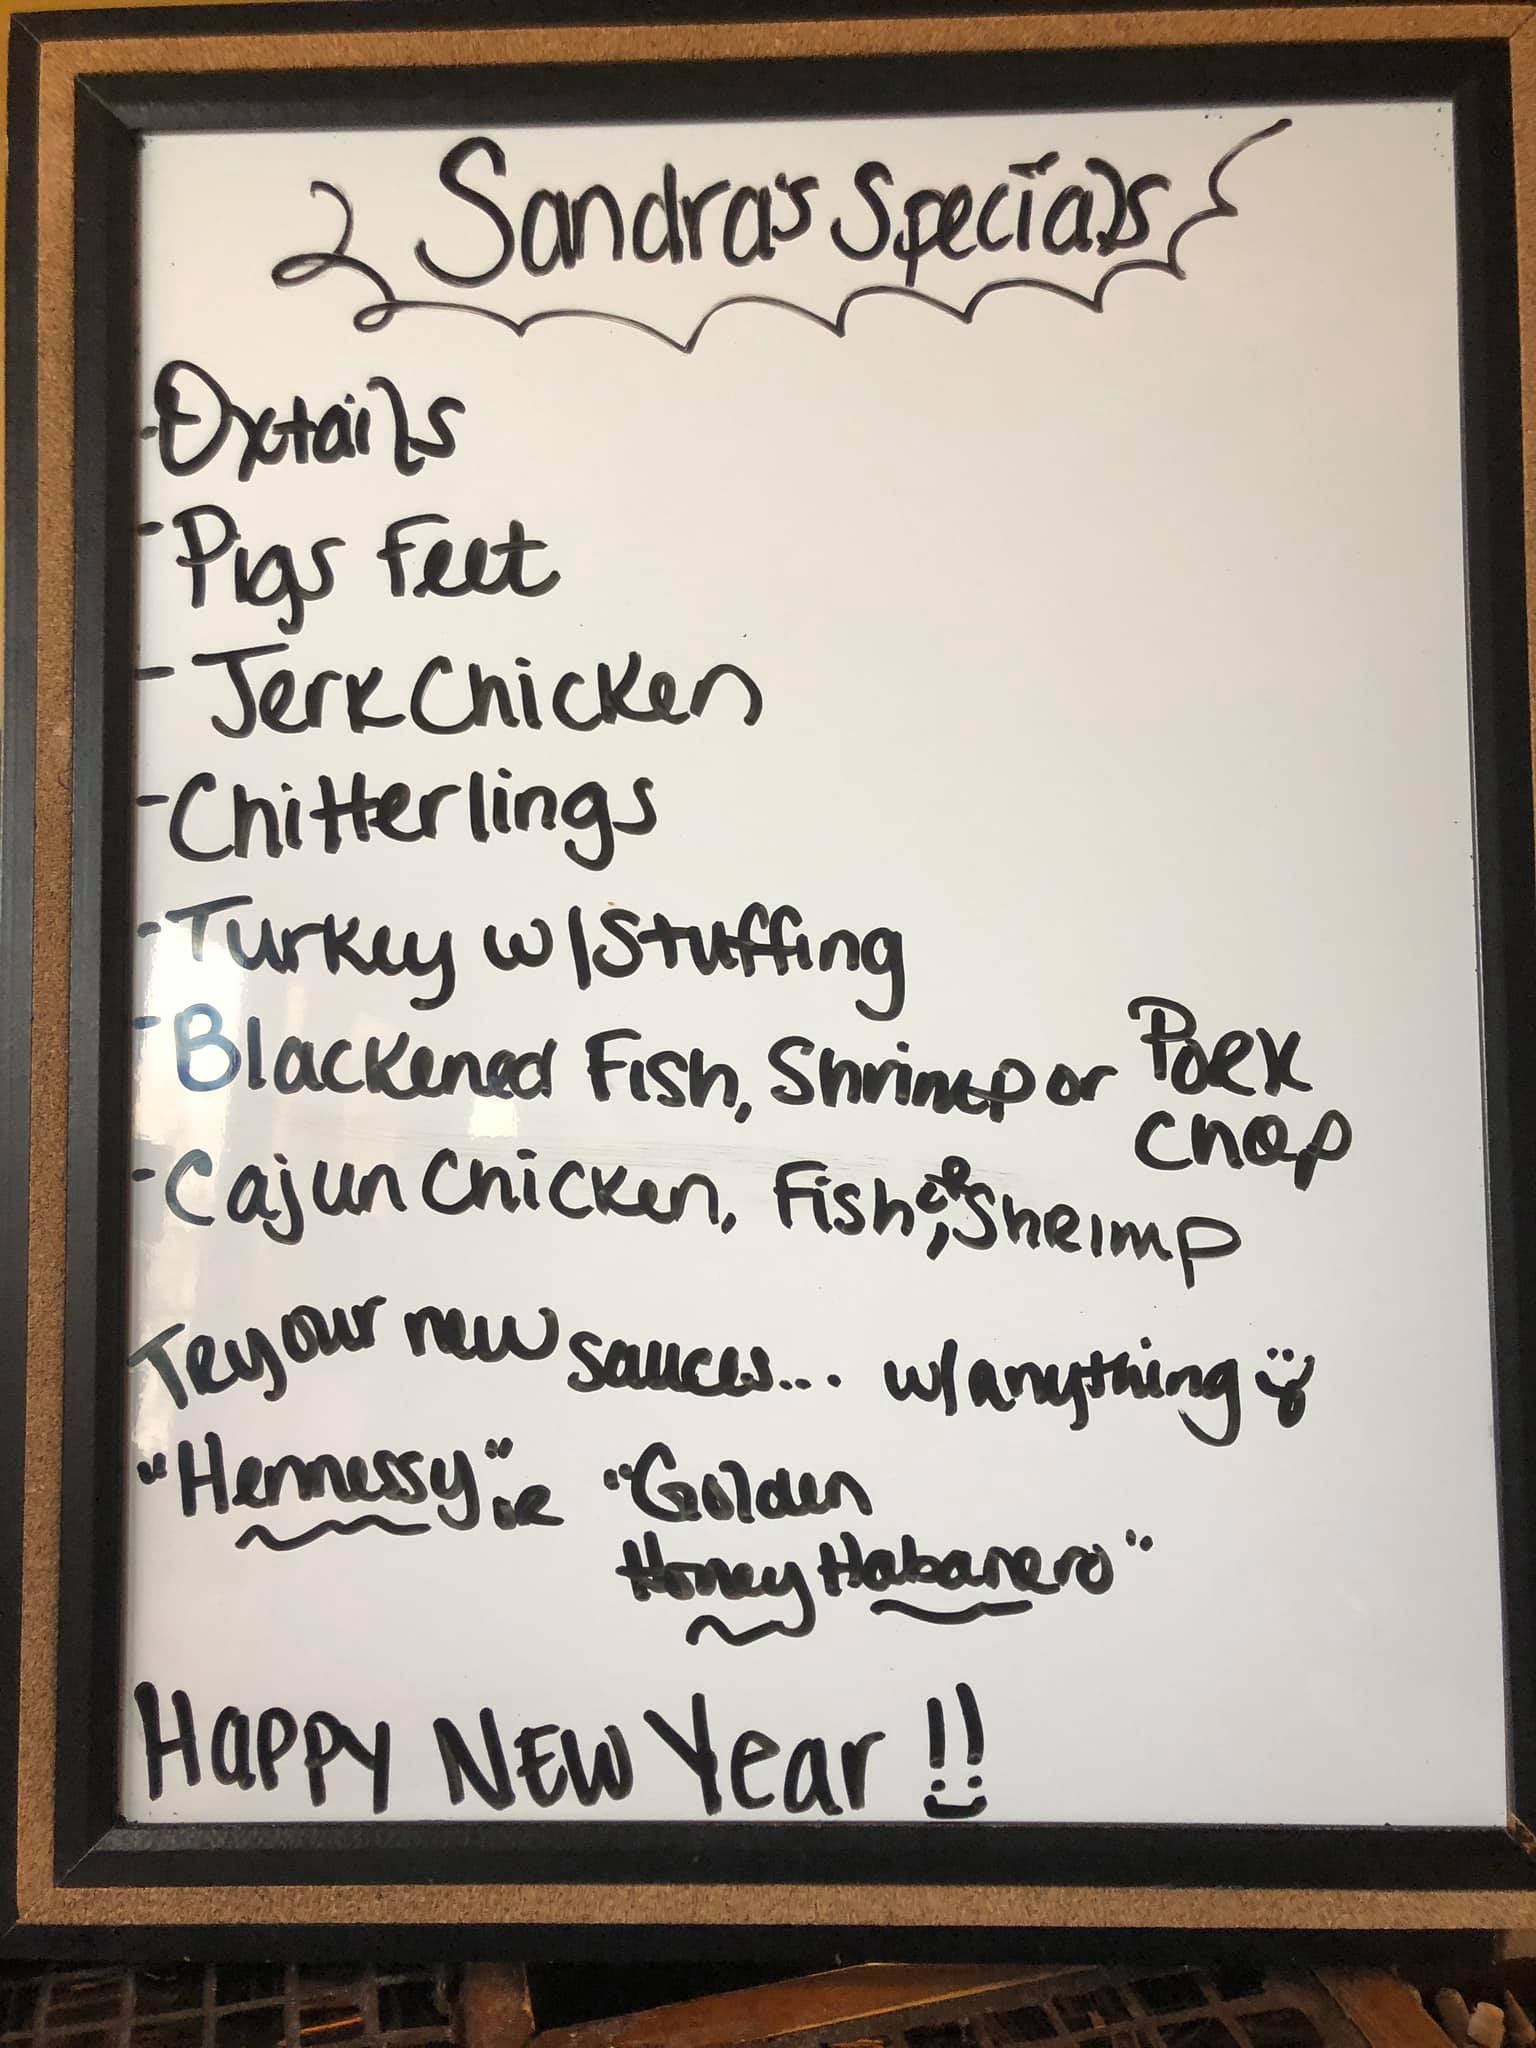 Sandra's Specials
- Oxtails
- Pigs Feet
- Jerk Chicken
- Chitterlings
- Turkey w/Stuffing
- Blackened Fish, Shrimp or Pork Chop
- Cajun Chicken, Fish, or Shrimp
Try our new sauces... w/anything
"Hennessy" or "Golden
Honey Habanero"
Happy New Year!!